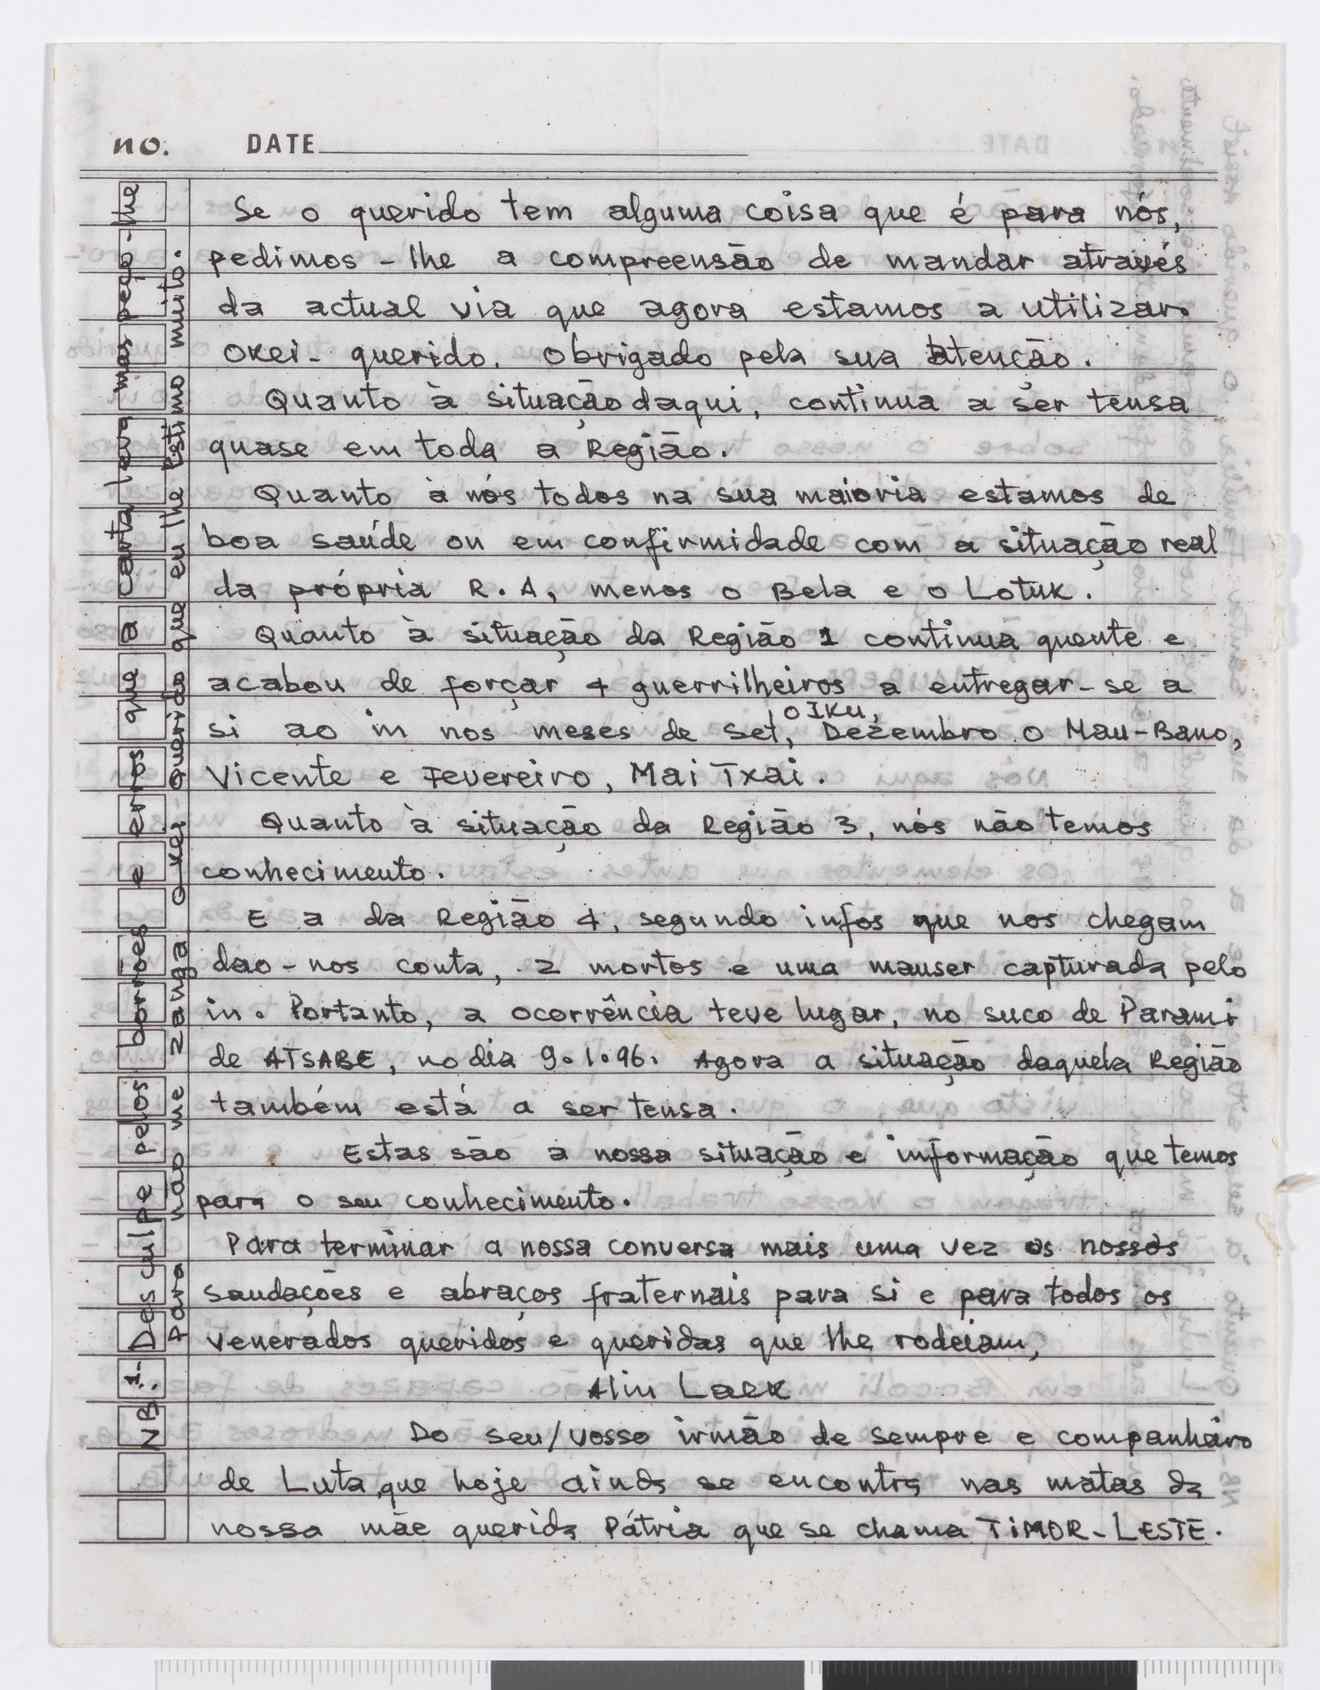 no. DATE
Se o querido tem alguma coisa que é para nós,
pedimos-lhe a compreensão de mandar através
da actual via que agora estamos a utilizar.
Okei-querido. Obrigado pela sua atenção.
Quanto à situação daqui, continua a ser tensa
quase em toda a Região.
Quanto à nós todos na sua maioria estamos de
boa saúde ou em confirmidade com a situação real
da própria R.A, menos o Bela e o Lotuk.
Quanto à situação da Região 1 continua quente e
acabou de forçar 4 guerrilheiros a entregar-se a
si ao in nos meses de Set, o IKU, Dezembro o Mau-Bano,
Vicente e Fevereiro, Mai Txai.
Quanto à situação da Região 3, nós não temos
conhecimento.
E a da Região 4, segundo infos que nos chegam
dão-nos conta, 2 mortos e uma mauser capturada pelo
in. Portanto, a ocorrência teve lugar, no suco de Parami
de ATSABE, no dia 9.1.96. Agora a situação daquela Região
também está a ser tensa.
Estas são a nossa situação e informação que temos
para o seu conhecimento.
Para terminar a nossa conversa mais uma vez os nossos
saudações e abraços fraternais para si e para todos os
venerados queridos e queridas que lhe rodeiam,
Alin Laek
Do seu/vosso irmão de sempre e companheiro
de Luta, que hoje ainda se encontra nas matas da
nossa mãe querida Pátria que se chama TIMOR-LESTE.
NB. 1- Desculpe pelos borrões e erros que a carta leva mas peço-lhe
para não me zanga over querido que eu lhe estimo muito.